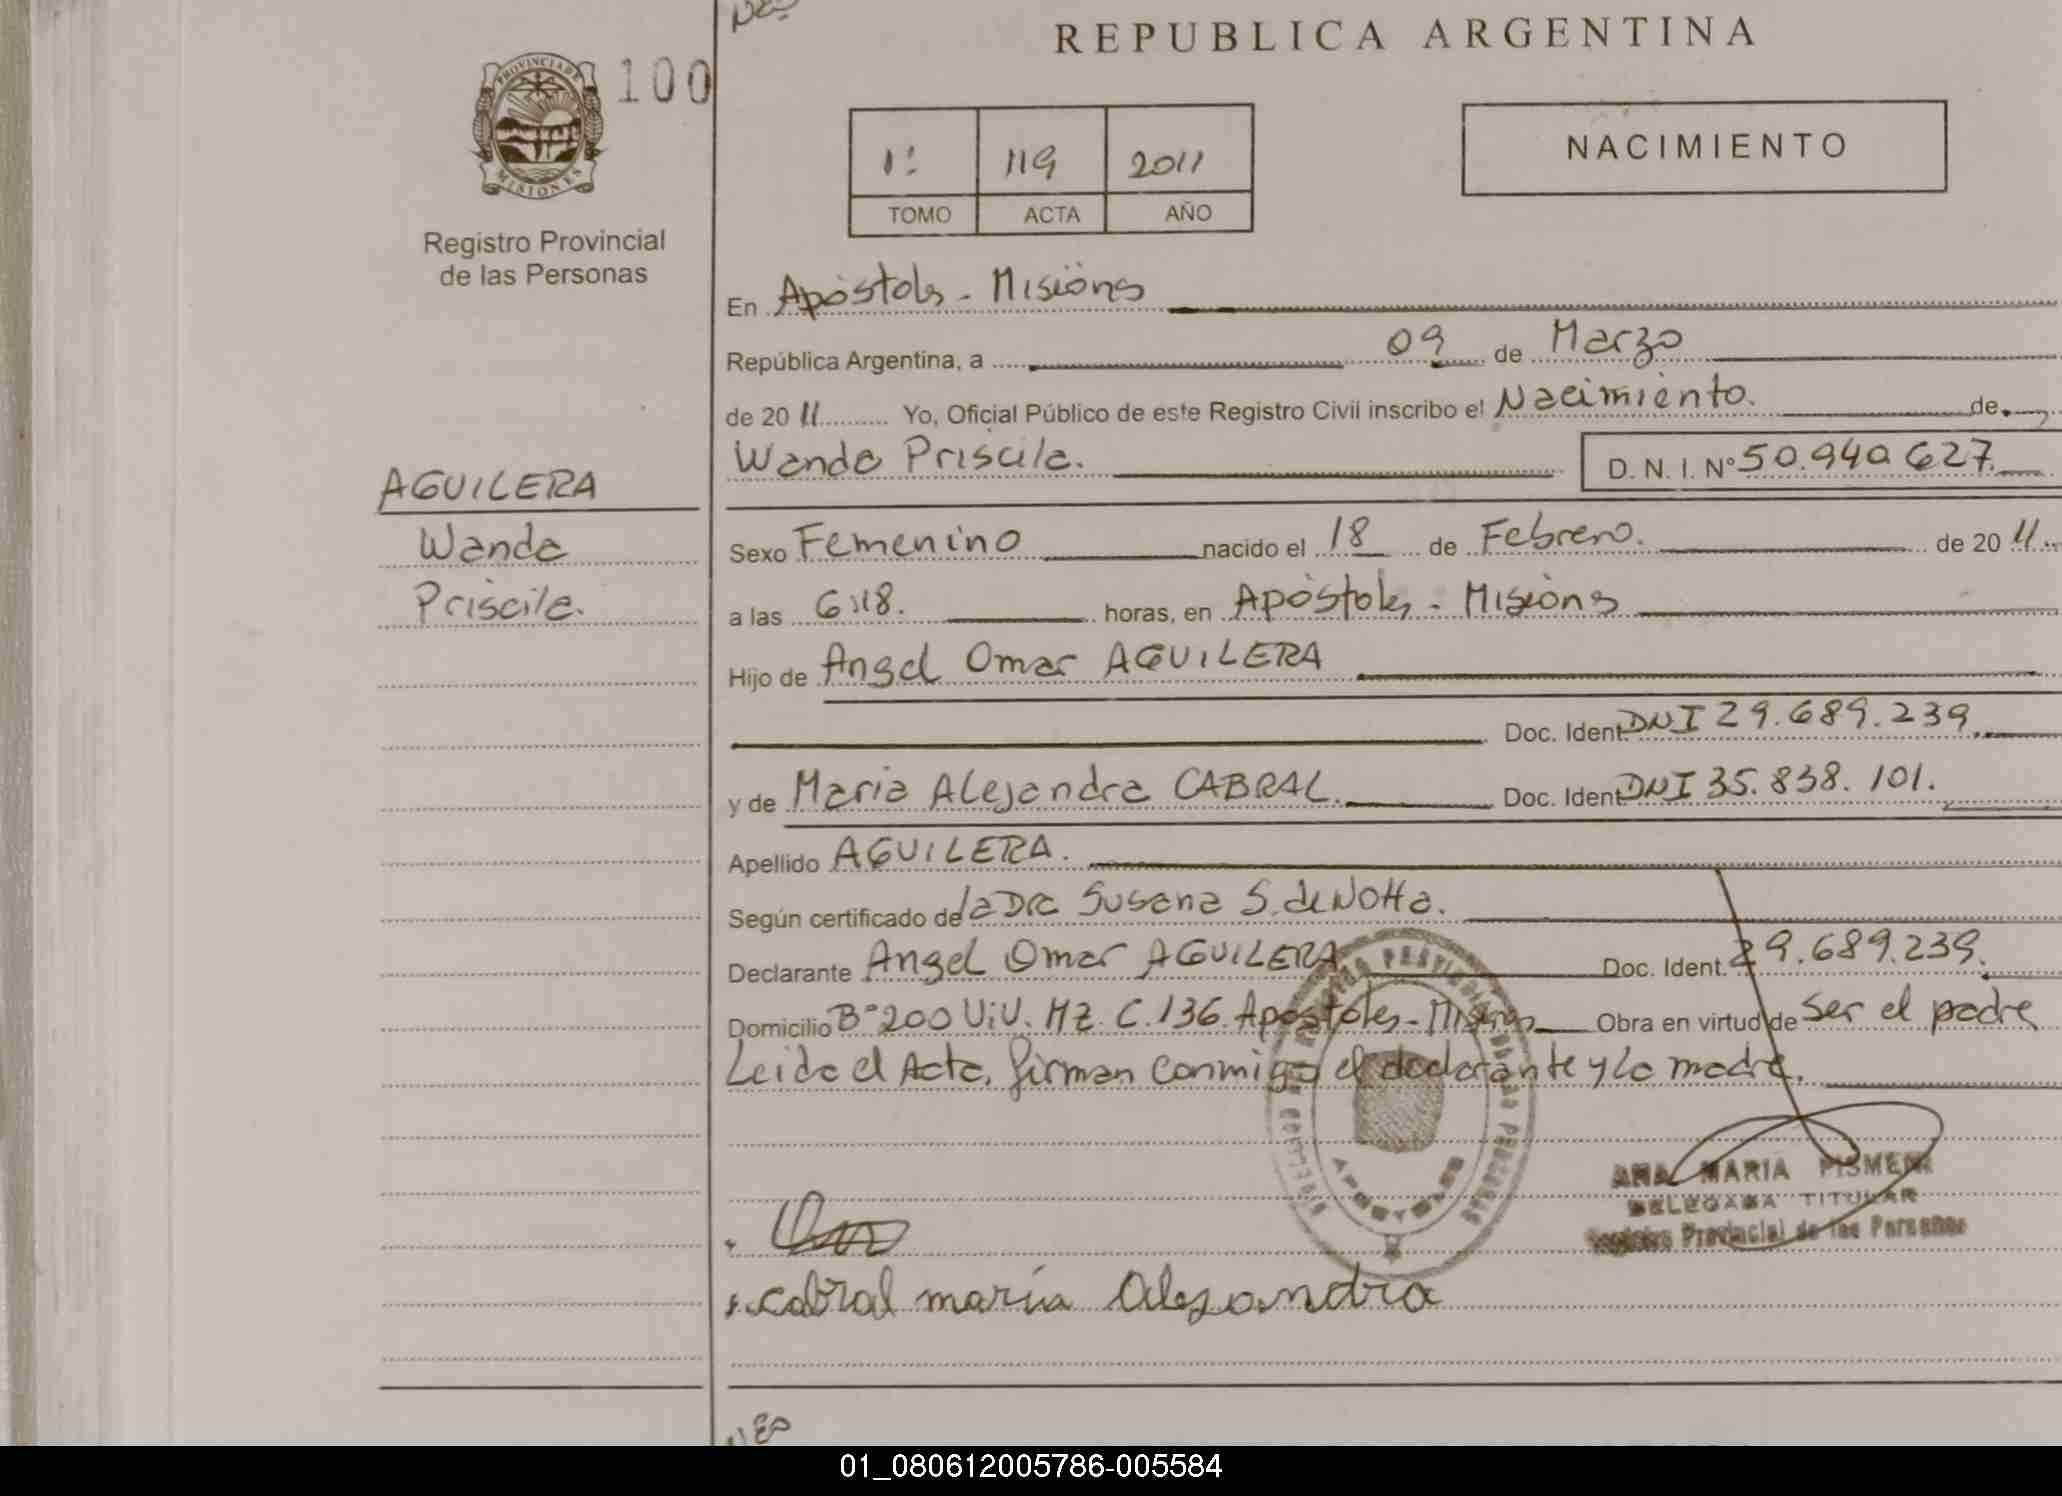 REPUBLICA ARGENTINA
PROVINCIA DE
MISIONES
100
Registro Provincial
de las Personas
1º 119 2011
TOMO ACTA AÑO
NACIMIENTO
En Apóstoles - Misiones
República Argentina, a 09 de Marzo
de 2011 Yo, Oficial Público de este Registro Civil inscribo el Nacimiento. de
Wanda Priscila. D. N. I. Nº 50.940.627.
AGUILERA
Wanda
Priscila.
Sexo Femenino nacido el 18 de Febrero. de 2011
a las 6:18. horas, en Apóstoles - Misiones
Hijo de Angel Omar AGUILERA
Doc. Ident DNI 29.689.239.
y de Maria Alejandra CABRAL. Doc. Ident DNI 35.838.101.
Apellido AGUILERA.
Según certificado de la Dra Susana S. de Notta.
Declarante Angel Omar AGUILERA Doc. Ident. 29.689.239.
Domicilio Bº 200 Viv. Mz. C. 136. Apóstoles - Misiones Obra en virtud de ser el padre
Leida el Acta, firman conmigo el declarante y la madre.
APOSTOLES
ANA MARIA PISMENI
DELEGADA TITULAR
Registro Provincial de las Personas
cabral maría Alejandra
01_080612005786-005584